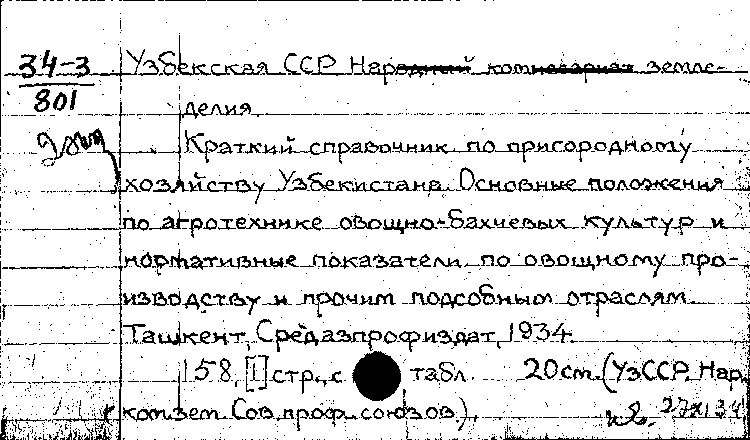 34-3
801
Узбекская ССР Народный комиссариат земле-
делия.
Краткий справочник по пригородному
хозяйству Узбекистана. Основные положения
по агротехнике овощно-бахчевых культур и
нормативные показатели по овощному про-
изводству и прочим подсобным отраслям.
Ташкент, Средазпрофиздат, 1934.
158, [1] стр., с табл. 20 см. (УзССР. Нар.
комзем. Сов. проф. союзов).